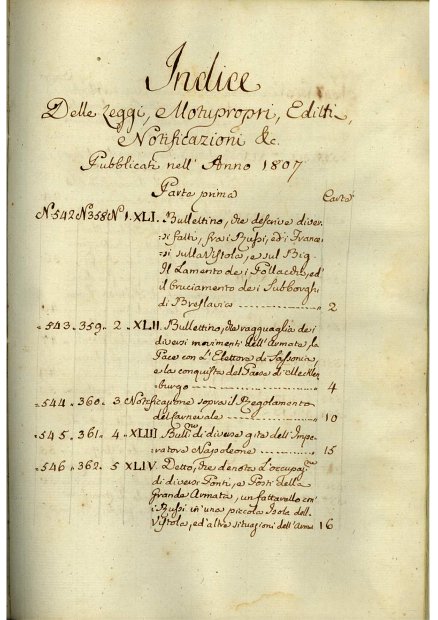 Indice
Delle Leggi, Motupropri, Editti,
Notificazioni &c.
Pubblicati nell' Anno 1807
Parte prima Carta
N. 542 N. 358 N. 1. XLI. Bullettino, che descrive diver-
si fatti, fra i Russi, ed i France-
si sulla Vistola, e sul Bug.
Il Lamento dei Pollacchi, ed'
il bruciamento dei Subborghi
di Breslavia 2
543. 359. 2 XLII. Bullettino, che ragguaglia dei
diversi movimenti dell'Armata, la
Pace con L'Elettore di Sassonia,
e la conquista del Paese di Mecklen-
burgo 4
544. 360. 3 Notificazione sopra il Regolamento
del Carnevale 10
545. 361. 4 XLIII Bull.no di diverse gite dell'Impe-
ratore Napoleone 15
546. 362. 5 XLIV. Detto, che denota L'occupaz.ne
di diversi Ponti, e Posti della
Grande Armata, un fattarello con
i Russi in una piccola Isola dell.
Vistola, ed'altre situazioni dell'Arma 16